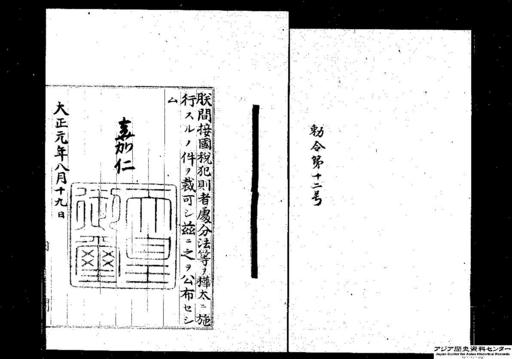 勅令第十二号
朕間接國税犯則者處分法等ヲ樺太ニ施
行スルノ件ヲ裁可シ茲ニ之ヲ公布セシ
ム
嘉仁
天皇
御璽
大正元年八月十九日
アジア歴史資料センター
Japan Center for Asian Historical Records